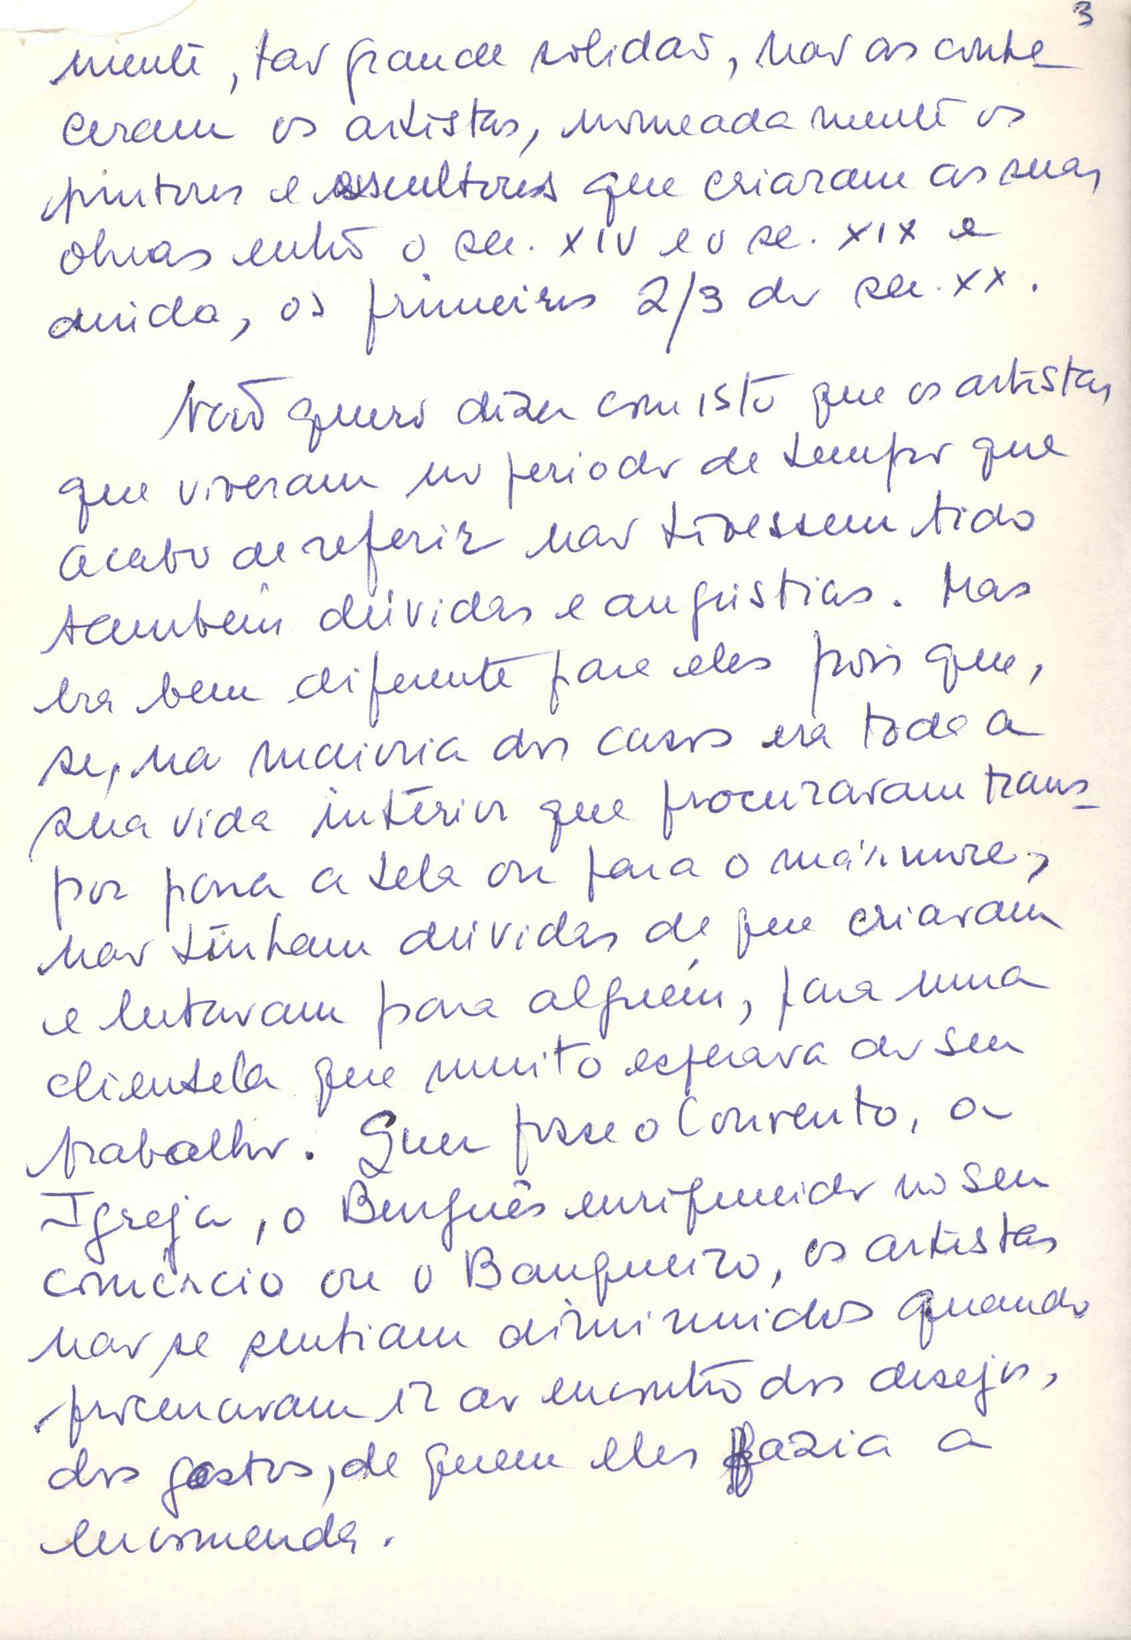 3
mente, tão grande solidão, não as conhe_
ceram os artistas, nomeadamente os
pintores e escultores que criaram as suas
obras entre o séc. XIV e o séc. XIX e
ainda, os primeiros 2/3 do séc. XX.
Não quero dizer com isto que os artistas
que viveram no período de tempo que
acabo de referir não tivessem tido
também dúvidas e angústias. Mas
era bem diferente para eles pois que,
se, na maioria dos casos era toda a
sua vida interior que procuravam trans_
por para a tela ou para o mármore,
não tinham dúvidas de que criavam
e lutavam para alguém, para uma
clientela que muito esperava do seu
trabalho. Quer fosse o Convento, a
Igreja, o Burguês enriquecido no seu
comércio ou o Banqueiro, os artistas
não se sentiam diminuidos quando
procuravam ir ao encontro dos desejos,
dos gostos, de quem eles fazia a
encomenda.